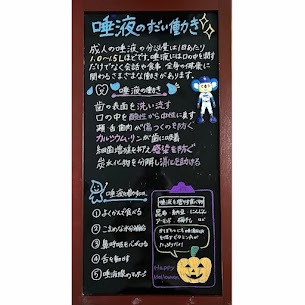 唾液のすごい働き
成人の唾液の分泌量は1日あたり
1.0〜1.5Lほどです。唾液には口の中を潤す
だけでなく会話や食事、全身の健康に
関わるさまざまな働きがあります。
唾液の働き
歯の表面を洗い流す
口の中を酸性から中性に戻す
頬・舌・歯肉が傷つくのを防ぐ
カルシウム・リンが歯に吸着
細菌増殖を抑え感染を防ぐ
炭水化物を分解し消化を助ける
① よくかんで食べる
② こまめな水分補給
③ 鼻呼吸を心がける
④ 舌を動かす
⑤ 唾液腺のマッサージ
唾液を増やす食べ物
昆布・納豆・にんじん
Happy
Halloween